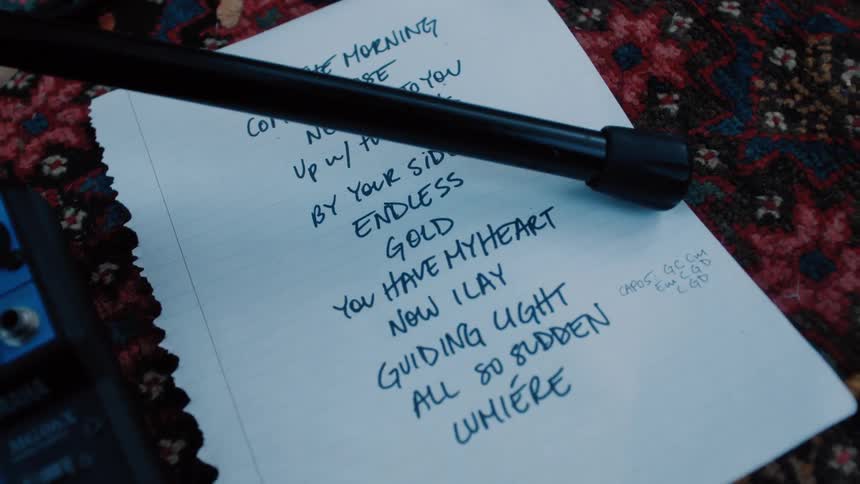 MORNING
TO YOU
UP W/
BY YOUR
ENDLESS
GOLD
YOU HAVE MY HEART
NOW I LAY
GUIDING LIGHT
ALL SO SUDDEN
LUMIÉRE
CAPO5: GC Em
Em C GD
C GD